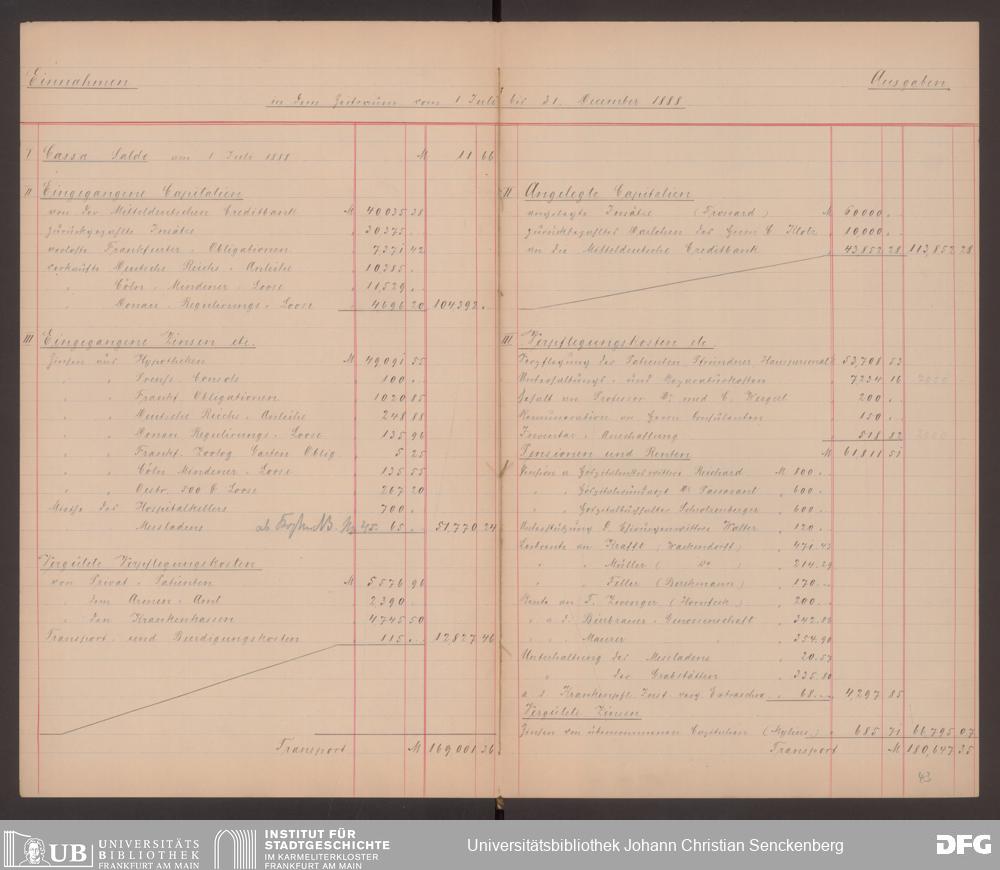 Einnahmen
Ausgaben
in dem Zeitraum vom 1 Juli bis 31. December 1888
I Cassa Saldo am 1 Juli 1888 M 11 66
II Eingegangene Capitalien
von der Mitteldeutschen Creditbank M 40035 28
zurückgezahlte Insätze 30375 .
verloste Frankfurter Obligationen 7371 42
verkaufte Deutsche Reichs-Anleihe 10385 .
" Cöln-Mindener-Loose 11529 .
" Donau-Regulierungs-Loose 4696 20 104392 .
III Eingegangene Zinsen etc.
Zinsen aus Hypotheken M 49091 55
" " Preuss. Consols 100 .
" " Frankf. Obligationen 1020 85
" " Deutsche Reichs-Anleihe 248 88
" " Donau Regulierungs-Loose 135 96
" " Frankf. Zoolog. Garten Oblig. 5 25
" " Cöln Mindener-Loose 135 55
" " Oestr. 500 Loose 267 20
Miethe des Hospitalkellers 700 .
Messladens 65 . 51,770 24
Vergütete Verpflegungskosten
von Privat-Patienten M 5576 96
" dem Armen-Amt 2390 .
" den Krankenkassen 4745 50
Transport- und Beerdigungskosten 115 . 12,827 46
Transport M 169001 36
II Angelegte Capitalien
angelegte Insätze M 60000 .
zurückbezahltes Darlehen des Herrn C. Klotz 10000 .
an die Mitteldeutsche Creditbank 43,852 28 113,852 28
III Verpflegungskosten etc.
Verpflegung der Patienten Pfründner Hauspersonal 53,708 53
Unterhaltungs- und Reparaturkosten 7234 16 2000
Gehalt an Professor Dr. med. C. Weigert 200 .
Remuneration an Herrn Consulenten 150 .
Inventar-Anschaffung 518 82 2000
Pensionen und Renten M 61811 51
Pension a. Hospitalmeisterswittwe Reichard M 800 .
" " Hospitalwundarzt Dr. Passavant 600 .
" " Hospitalbuchhalter 600 .
Unterstützung d. Chirurgenwittwe Walter 120 .
Leibrente an Krafft (Wackendorff) 471.43
" " Müller ( do ) 214.29
" " Feller (Berckmann) 170 .
Rente an F. Zwenger (Horneck) 200 .
" a. d. Bierbrauer-Genossenschaft 342.86
" " Maurer " 354.90
Unterhaltung des Messladens 20.57
" der Grabstätten 335.80
a. d. Krankenpfl. Inst. 68 . 4,297 85
Vergütete Zinsen
Zinsen von übernommenen Capitalien (Mylius) 685 71 66,795 07
Transport M 180,647 35
43
UB UNIVERSITÄTS BIBLIOTHEK FRANKFURT AM MAIN
INSTITUT FÜR STADTGESCHICHTE IM KARMELITERKLOSTER FRANKFURT AM MAIN
Universitätsbibliothek Johann Christian Senckenberg
DFG